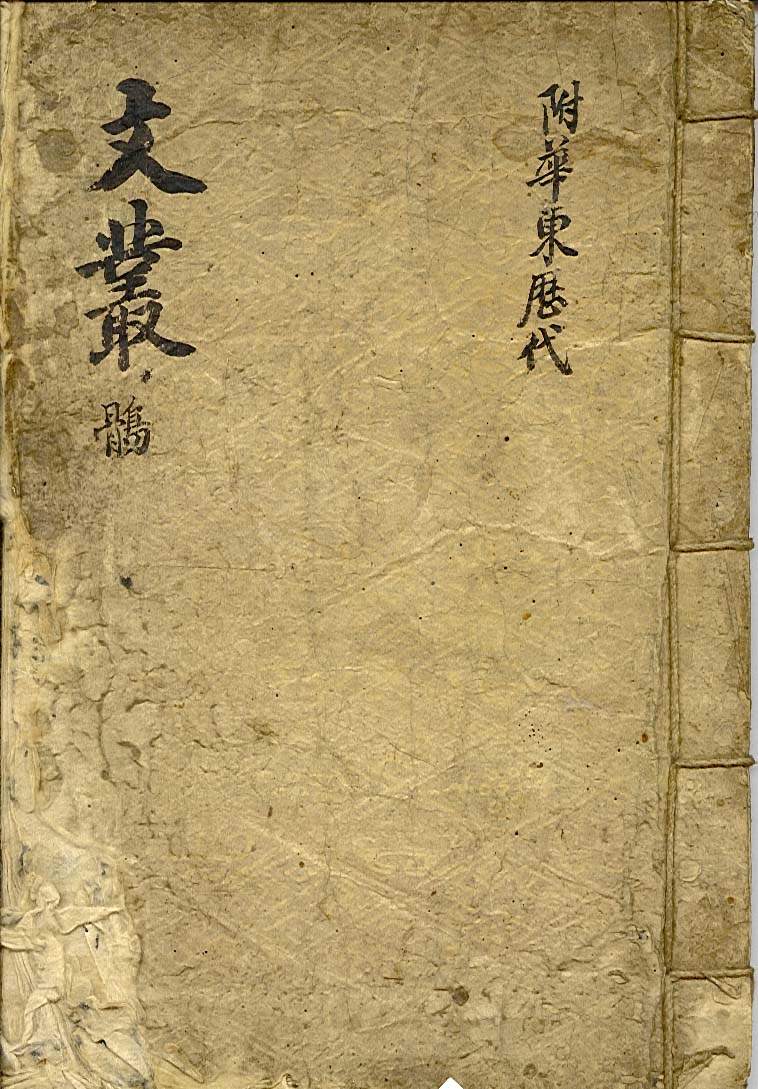 附華東歷代
文叢 鶻